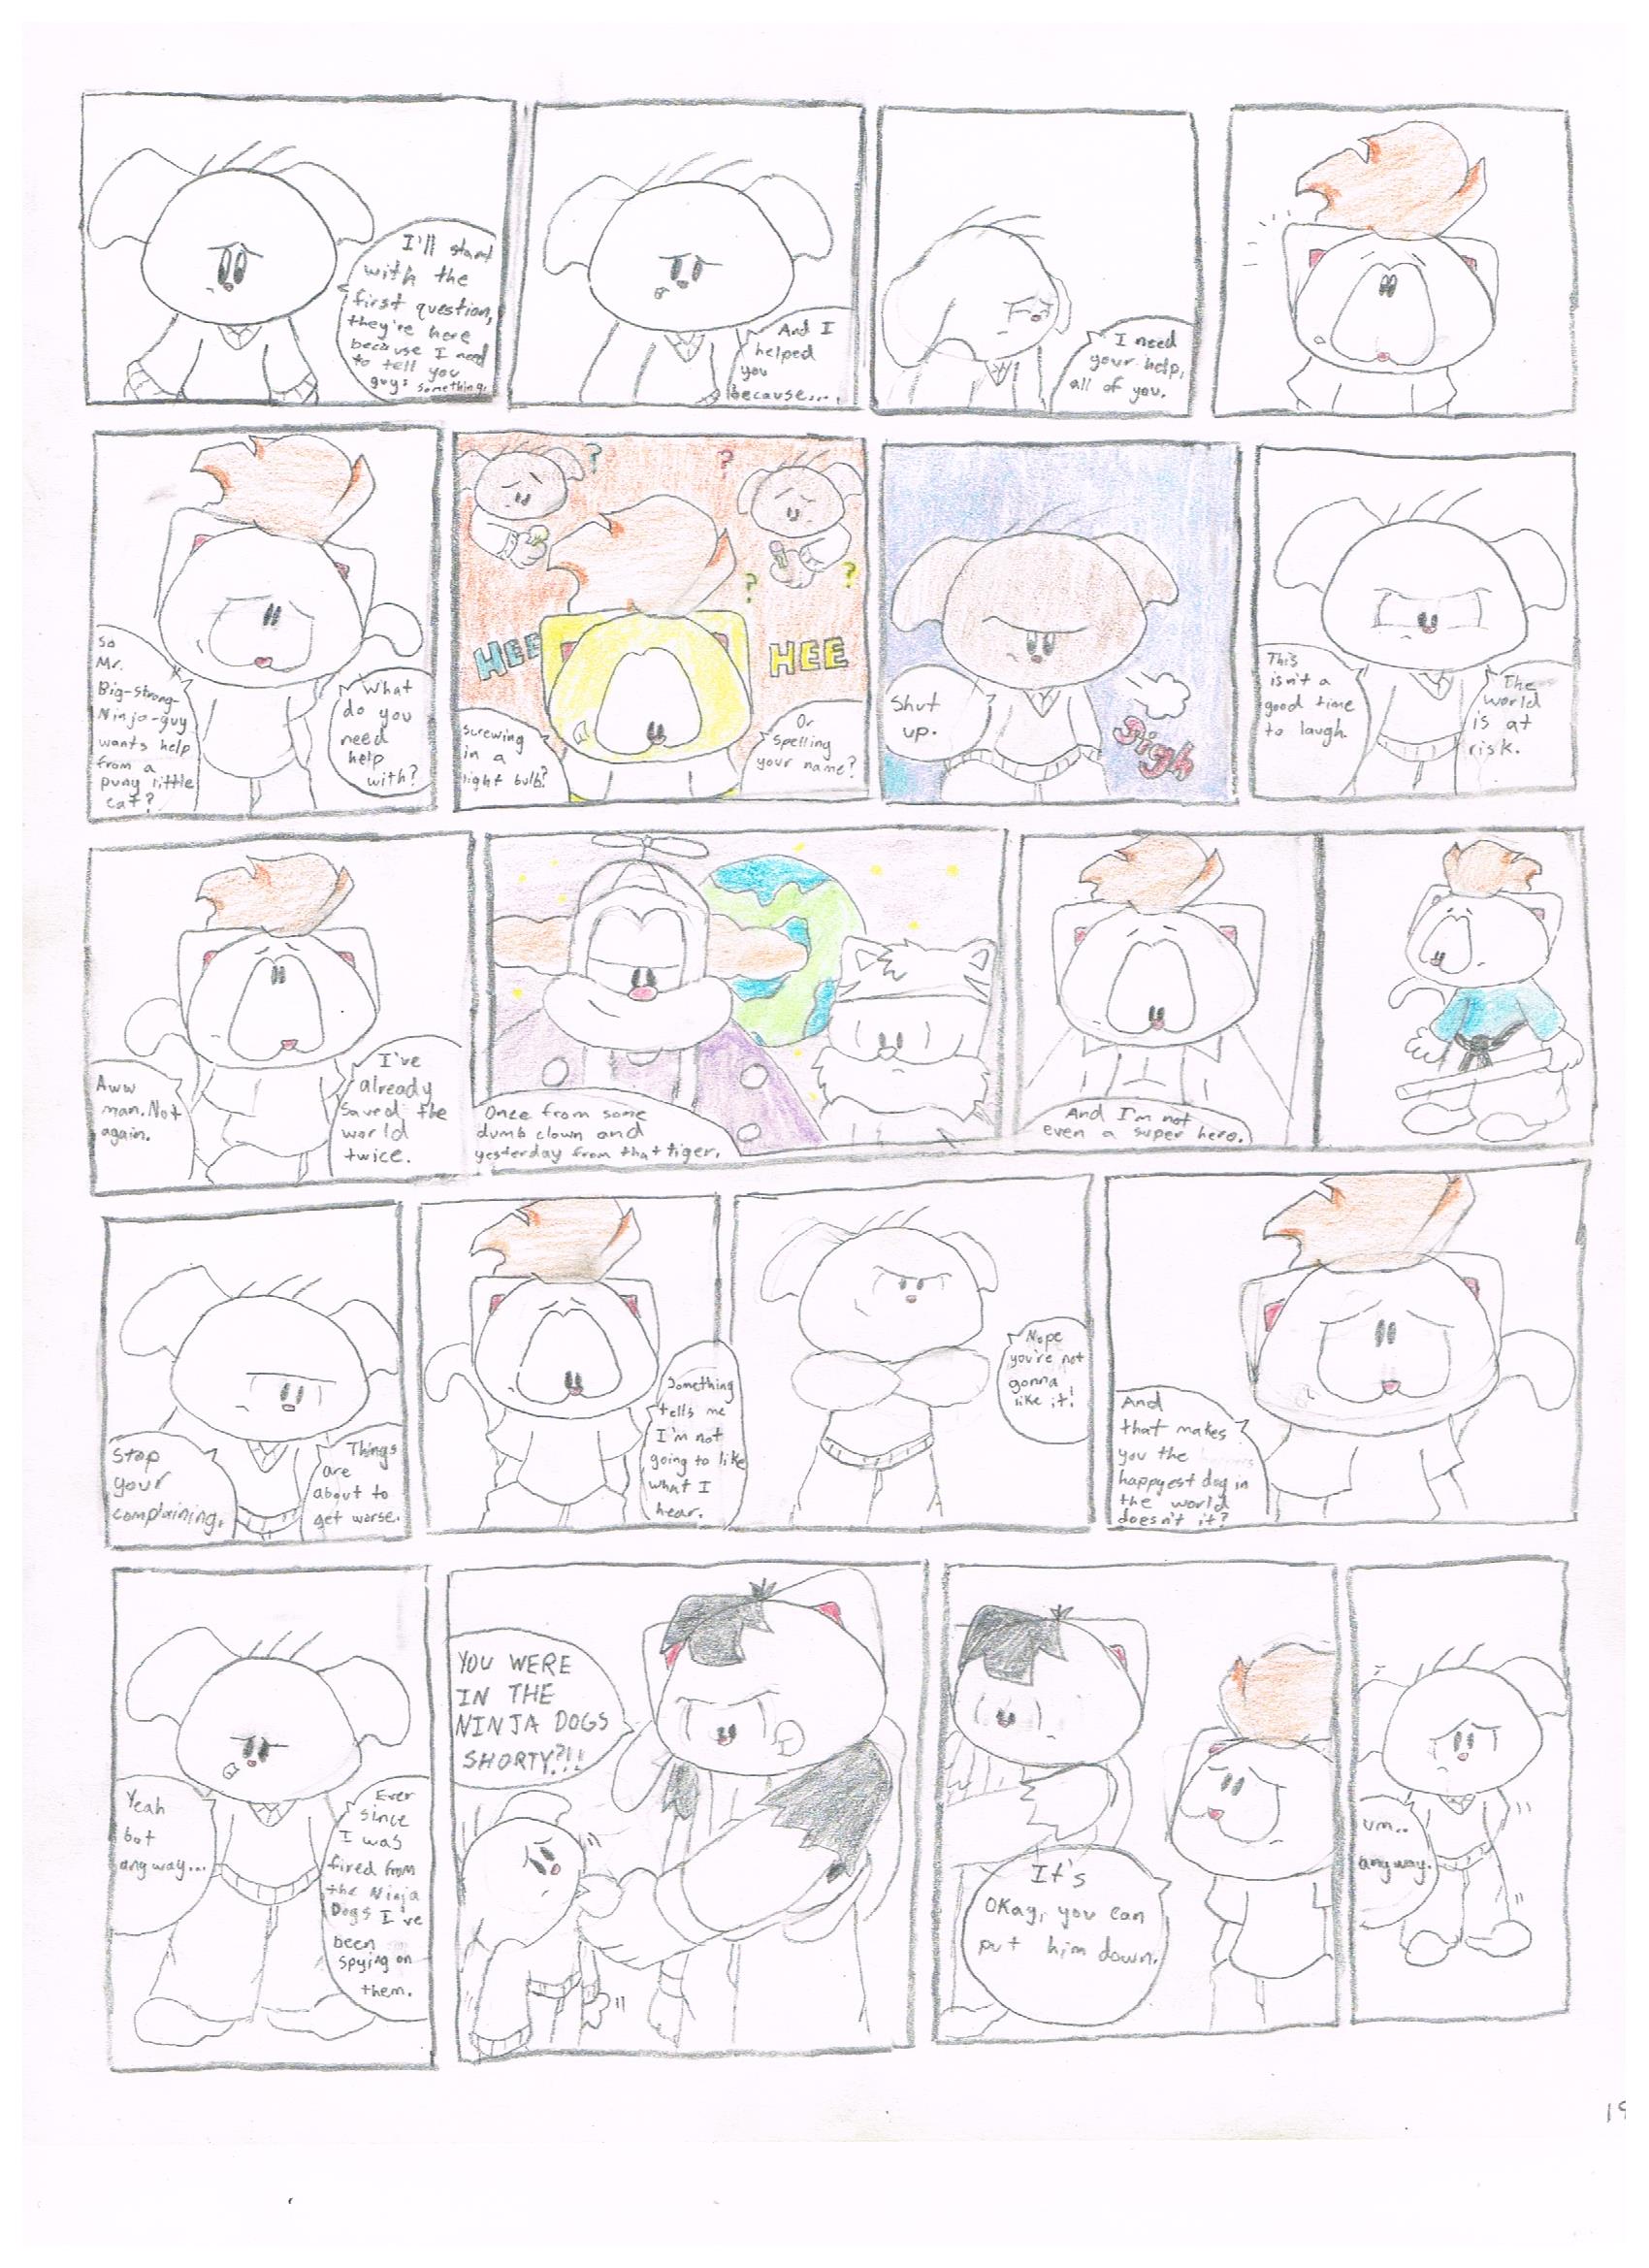 I'll start
with the
first question,
they're here
because I need
to tell you
guys something.
And I
helped
you
because....
I need
your help,
all of you.
So
Mr.
Big-strong-
Ninja-guy
wants help
from a
puny little
cat?
What
do you
need
help
with?
?
?
?
?
HEE
HEE
Screwing
in a
light bulb?
Or
spelling
your name?
Shut
up.
Sigh
This
isn't a
good time
to laugh.
The
world
is at
risk.
Aww
man. Not
again.
I've
already
saved the
world
twice.
Once from some
dumb clown and
yesterday from that tiger.
And I'm not
even a super hero.
Stop
your
complaining.
Things
are
about to
get worse.
Something
tells me
I'm not
going to like
what I
hear.
Nope
you're not
gonna
like it!
And
that makes
you the
happyest dog in
the world
doesn't it?
Yeah
but
anyway...
Ever
since
I was
fired from
the Ninja
Dogs I've
been
spying on
them.
YOU WERE
IN THE
NINJA DOGS
SHORTY?!!
It's
Okay, you can
put him down.
um..
anyway.
19